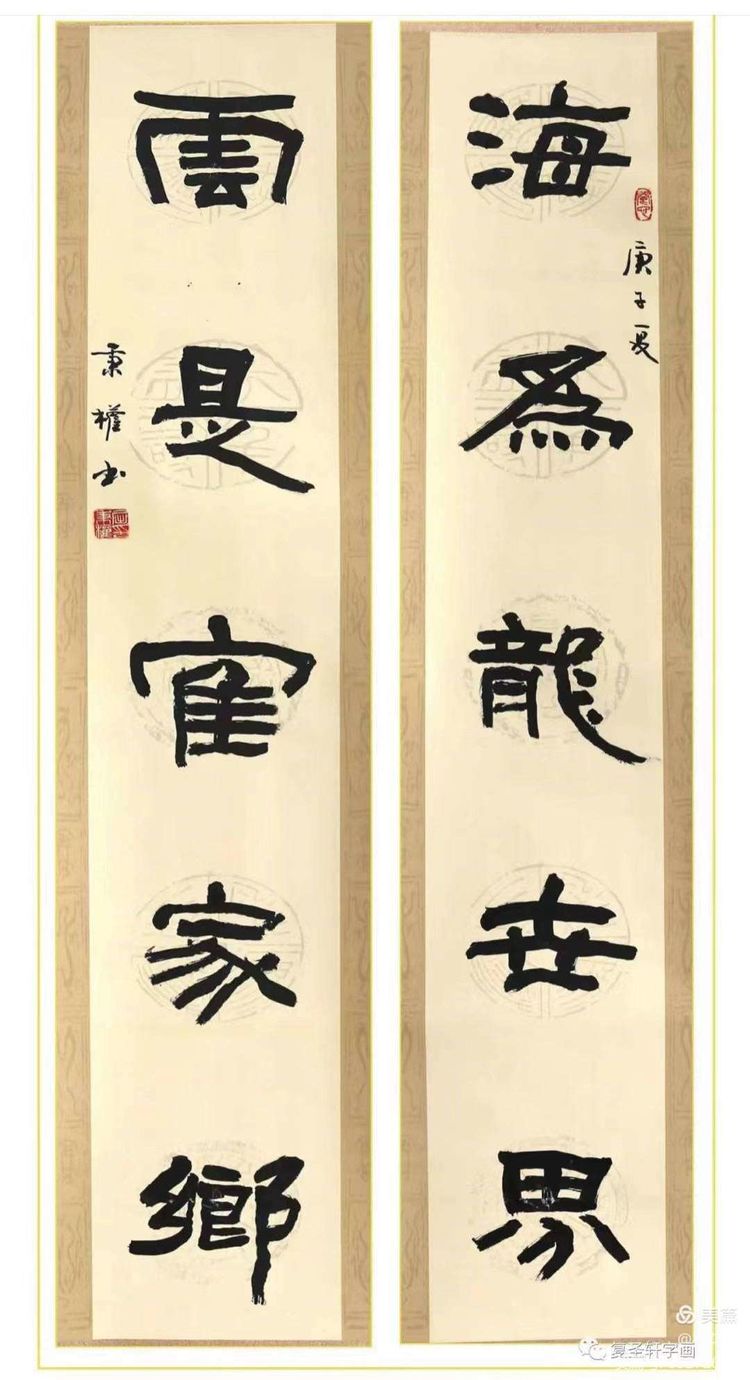 海為龍世界
庚子夏
雲是隺家鄉
秉權书
美篇
复圣轩字画